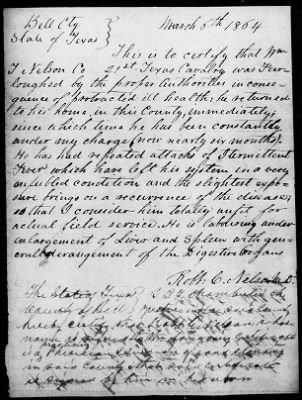 Bell Cty } March 6th 1864
State of Texas }
This is to certify that Wm
T Nelson Co 21st Texas Cavalry was Fur
loughed by the proper Authorities in conse
quence of protracted ill health; he returned
to his home, in this County, immediately;
since which time he has been constantly
under my charge (now nearly six months).
He has had repeated attacks of Intermittent
Fever which have left his system in a very
enfeebled condition and the slightest expo-
sure brings on a recurrence of the disease;
so that I consider him totally unfit for
actual field service. He is labouring under
enlargement of Liver and Spleen with gen-
eral derangement of the Digestive Organs
Robt. C. Nelson
The State of Texas
County of Bell
hereby certify that
is a
in said County
is signed by him